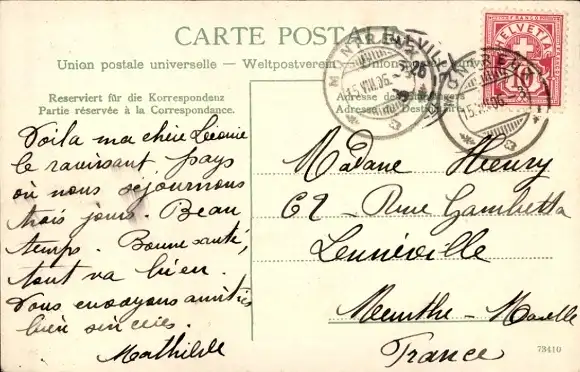 CARTE POSTALE
Union postale universelle — Weltpostverein — Union
Reserviert für die Korrespondenz
Partie réservée à la Correspondance.
Adresse des
Adresse du Destinataire
HELVETIA
10
MONTREUX
15.VIII.06.
15.VIII.06.-3
Voila ma chère Léonie
le ravissant pays
où nous séjournons
trois jours. Beau
temps. Bonne santé,
tout va bien.
Vous envoyons amitiés
bien sincères.
Mathilde
Madame Henry
62 - Rue Gambetta
Lunéville
Meurthe - Moselle
France
73410